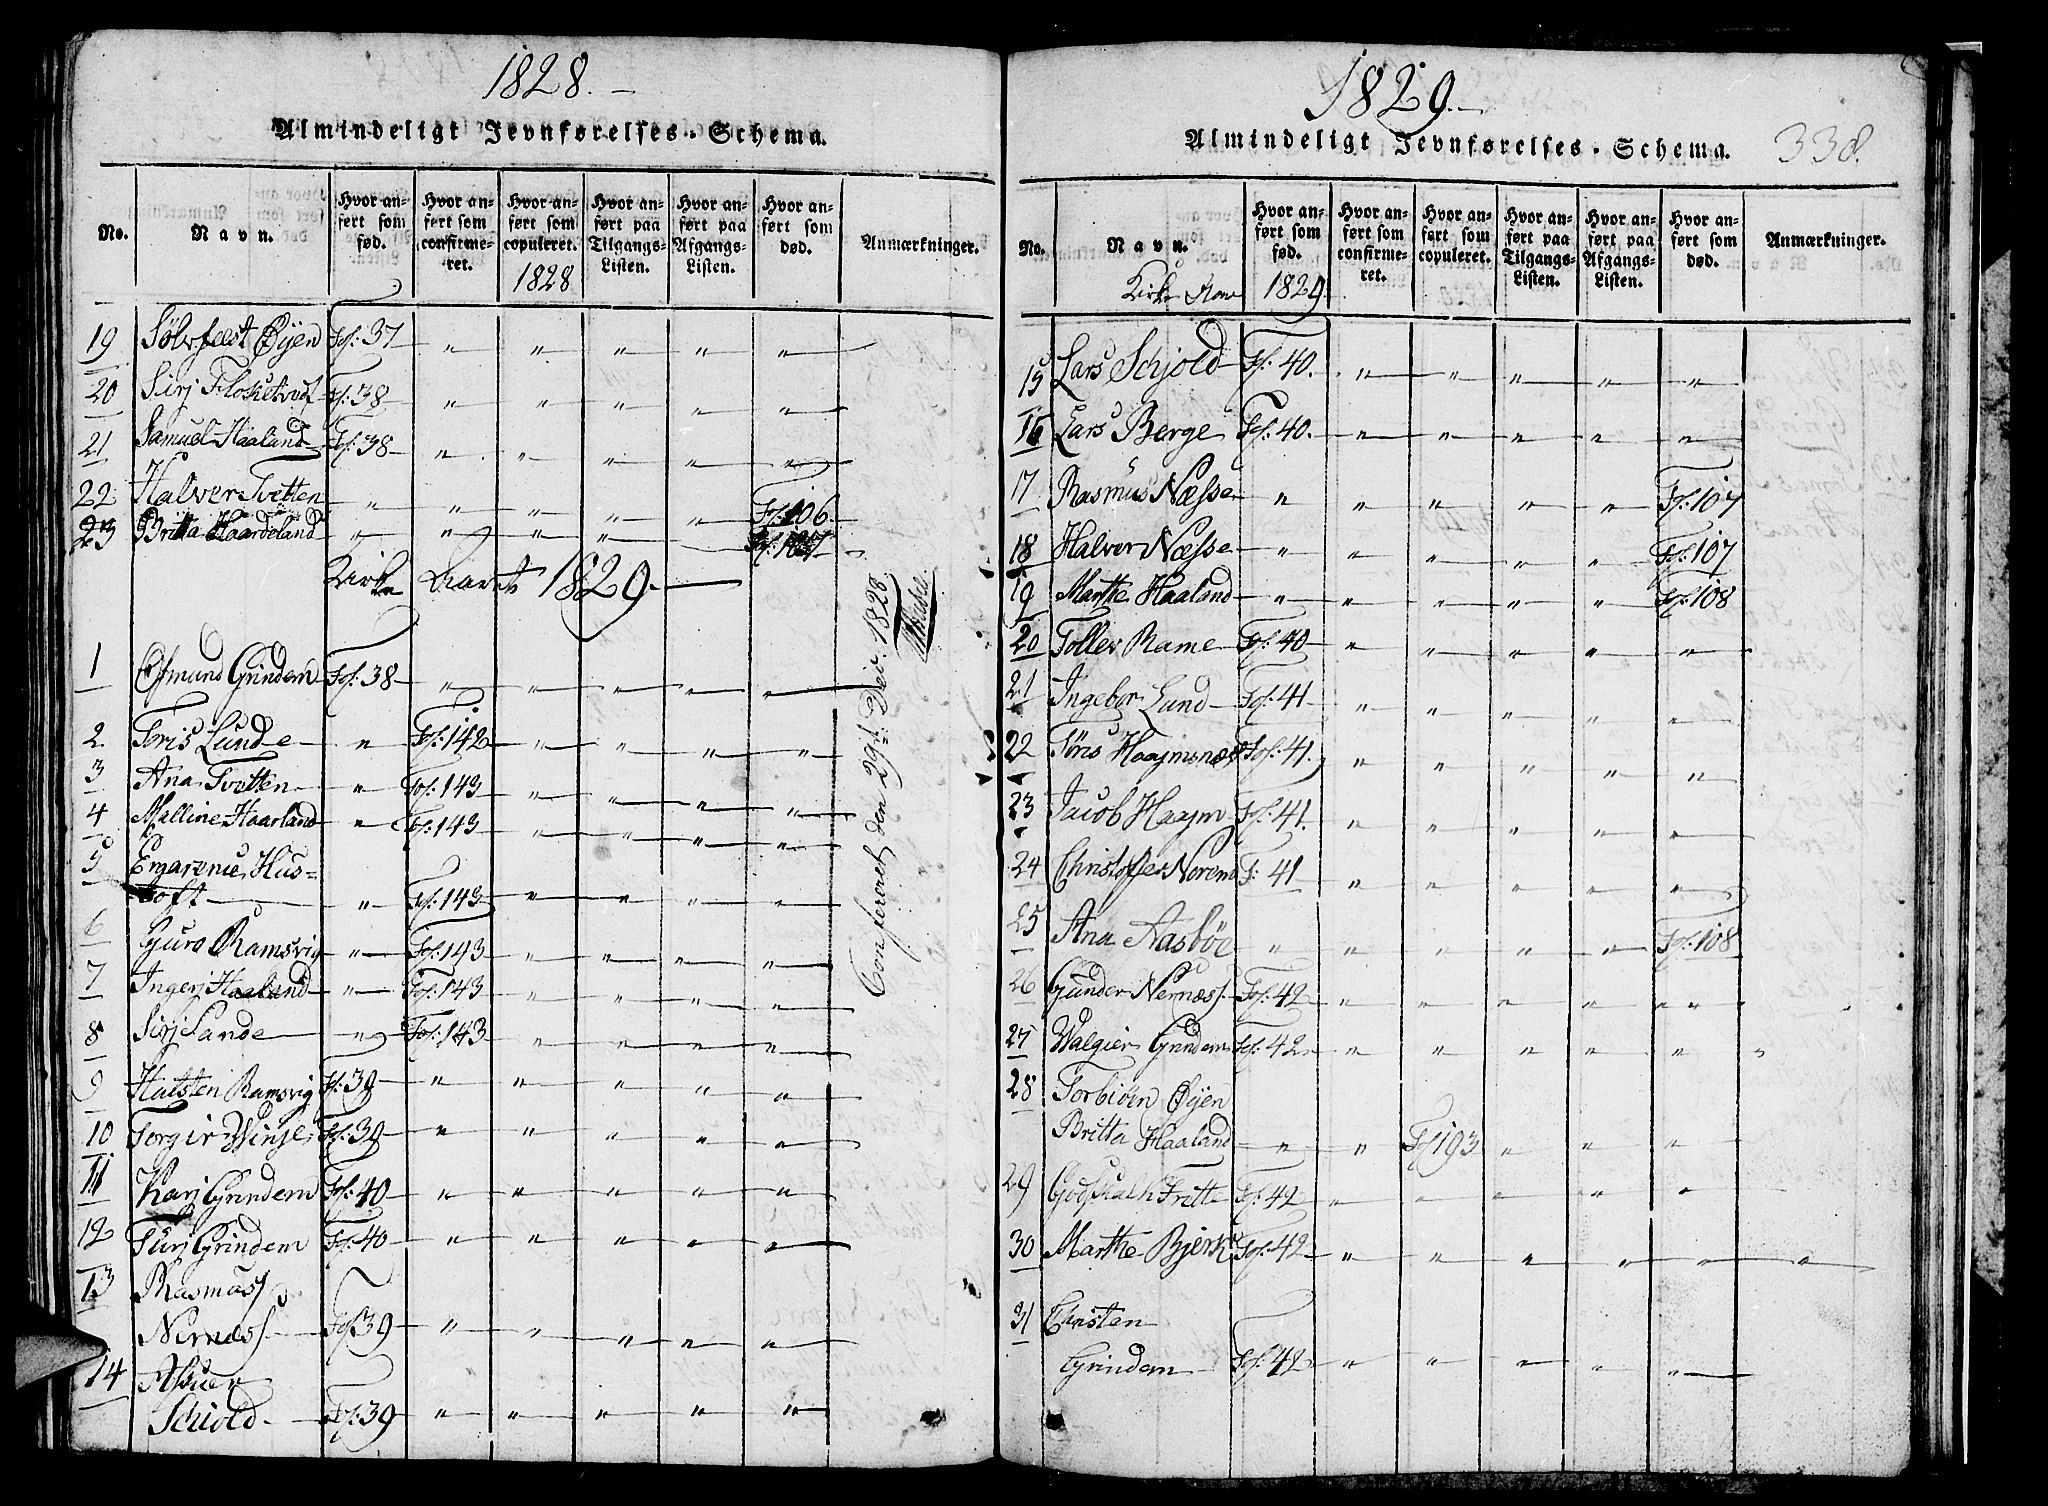 1828.
Almindeligt Jevnførelses-Schema.
No.
Navn.
Hvor anført som fød.
Hvor anført som confirmeret.
Hvor anført som copuleret.
Hvor anført paa Tilgangs-Listen.
Hvor anført paa Afgangs-Listen.
Hvor anført som død.
Anmærkninger.
1828
19 Sølvfæst Øijen Fol: 37 " " " " "
20 Sirj Flokketvedt Fol: 38 " " " " "
21 Samuel Haaland Fol: 38 " " " " "
22 Halver Tvetten " " " " " Fol: 106
23 Britta Haardeland " " " " Fol: 107
Kirke Aaret 1829.
Confereret den 29de Dec. 1828.
1 Osmund Grindem Fol: 38 " " " " "
2 Toris Lunde " Fol: 142 " " " "
3 Ana Tvetten " Fol: 143 " " " "
4 Malline Haarland " Fol: 143 " " " "
5 Engarenne Hus=
toft " Fol: 143 " " " "
6 Guro Ramsvig " Fol: 143 " " " "
7 Ingerj Haaland " Fol: 143 " " " "
8 Sirj Sande " Fol: 143 " " " "
9 Halsten Ramsvig Fol: 39 " " " " "
10 Torgir Winje Fol: 39 " " " " "
11 Karj Grindem Fol: 40 " " " " "
12 Turj Grindem Fol: 40 " " " " "
13 Rasmus
Nernæss Fol: 39 " " " " "
14 Assuer
Schiold Fol: 39 " " " " "
1829.
Almindeligt Jevnførelses-Schema.
338.
No.
Navn.
Hvor anført som fød.
Hvor anført som confirmeret.
Hvor anført som copuleret.
Hvor anført paa Tilgangs-Listen.
Hvor anført paa Afgangs-Listen.
Hvor anført som død.
Anmærkninger.
Kirke Aar 1829.
15 Lars Schjold Fol: 40. " " " " "
16 Lars Berge Fol: 40. " " " " "
17 Rasmus Næsse " " " " " Fol: 107
18 Halver Næsse " " " " " Fol: 107
19 Marthe Haaland " " " " " Fol: 108
20 Tollev Rame Fol: 40 " " " " "
21 Ingebor Lund Fol: 41 " " " " "
22 Tøris Haajmsnæs Fol: 41. " " " " "
23 Jacob Haajm Fol: 41. " " " " "
24 Christoffer Norem F: 41 " " " " "
25 Ana Aasbøe " " " " " Fol: 108
26 Gunder Nernæss Fol: 42 " " " " "
27 Walgier Grindem Fol: 42 " " " " "
28 Torbiörn Øijen
Britta Haaland " " Fol 193 " " "
29 Godskalk Tvette Fol: 42 " " " " "
30 Marthe Bjerk Fol: 42 " " " " " "
31 Christen
Grindem Fol: 42 " " " " "